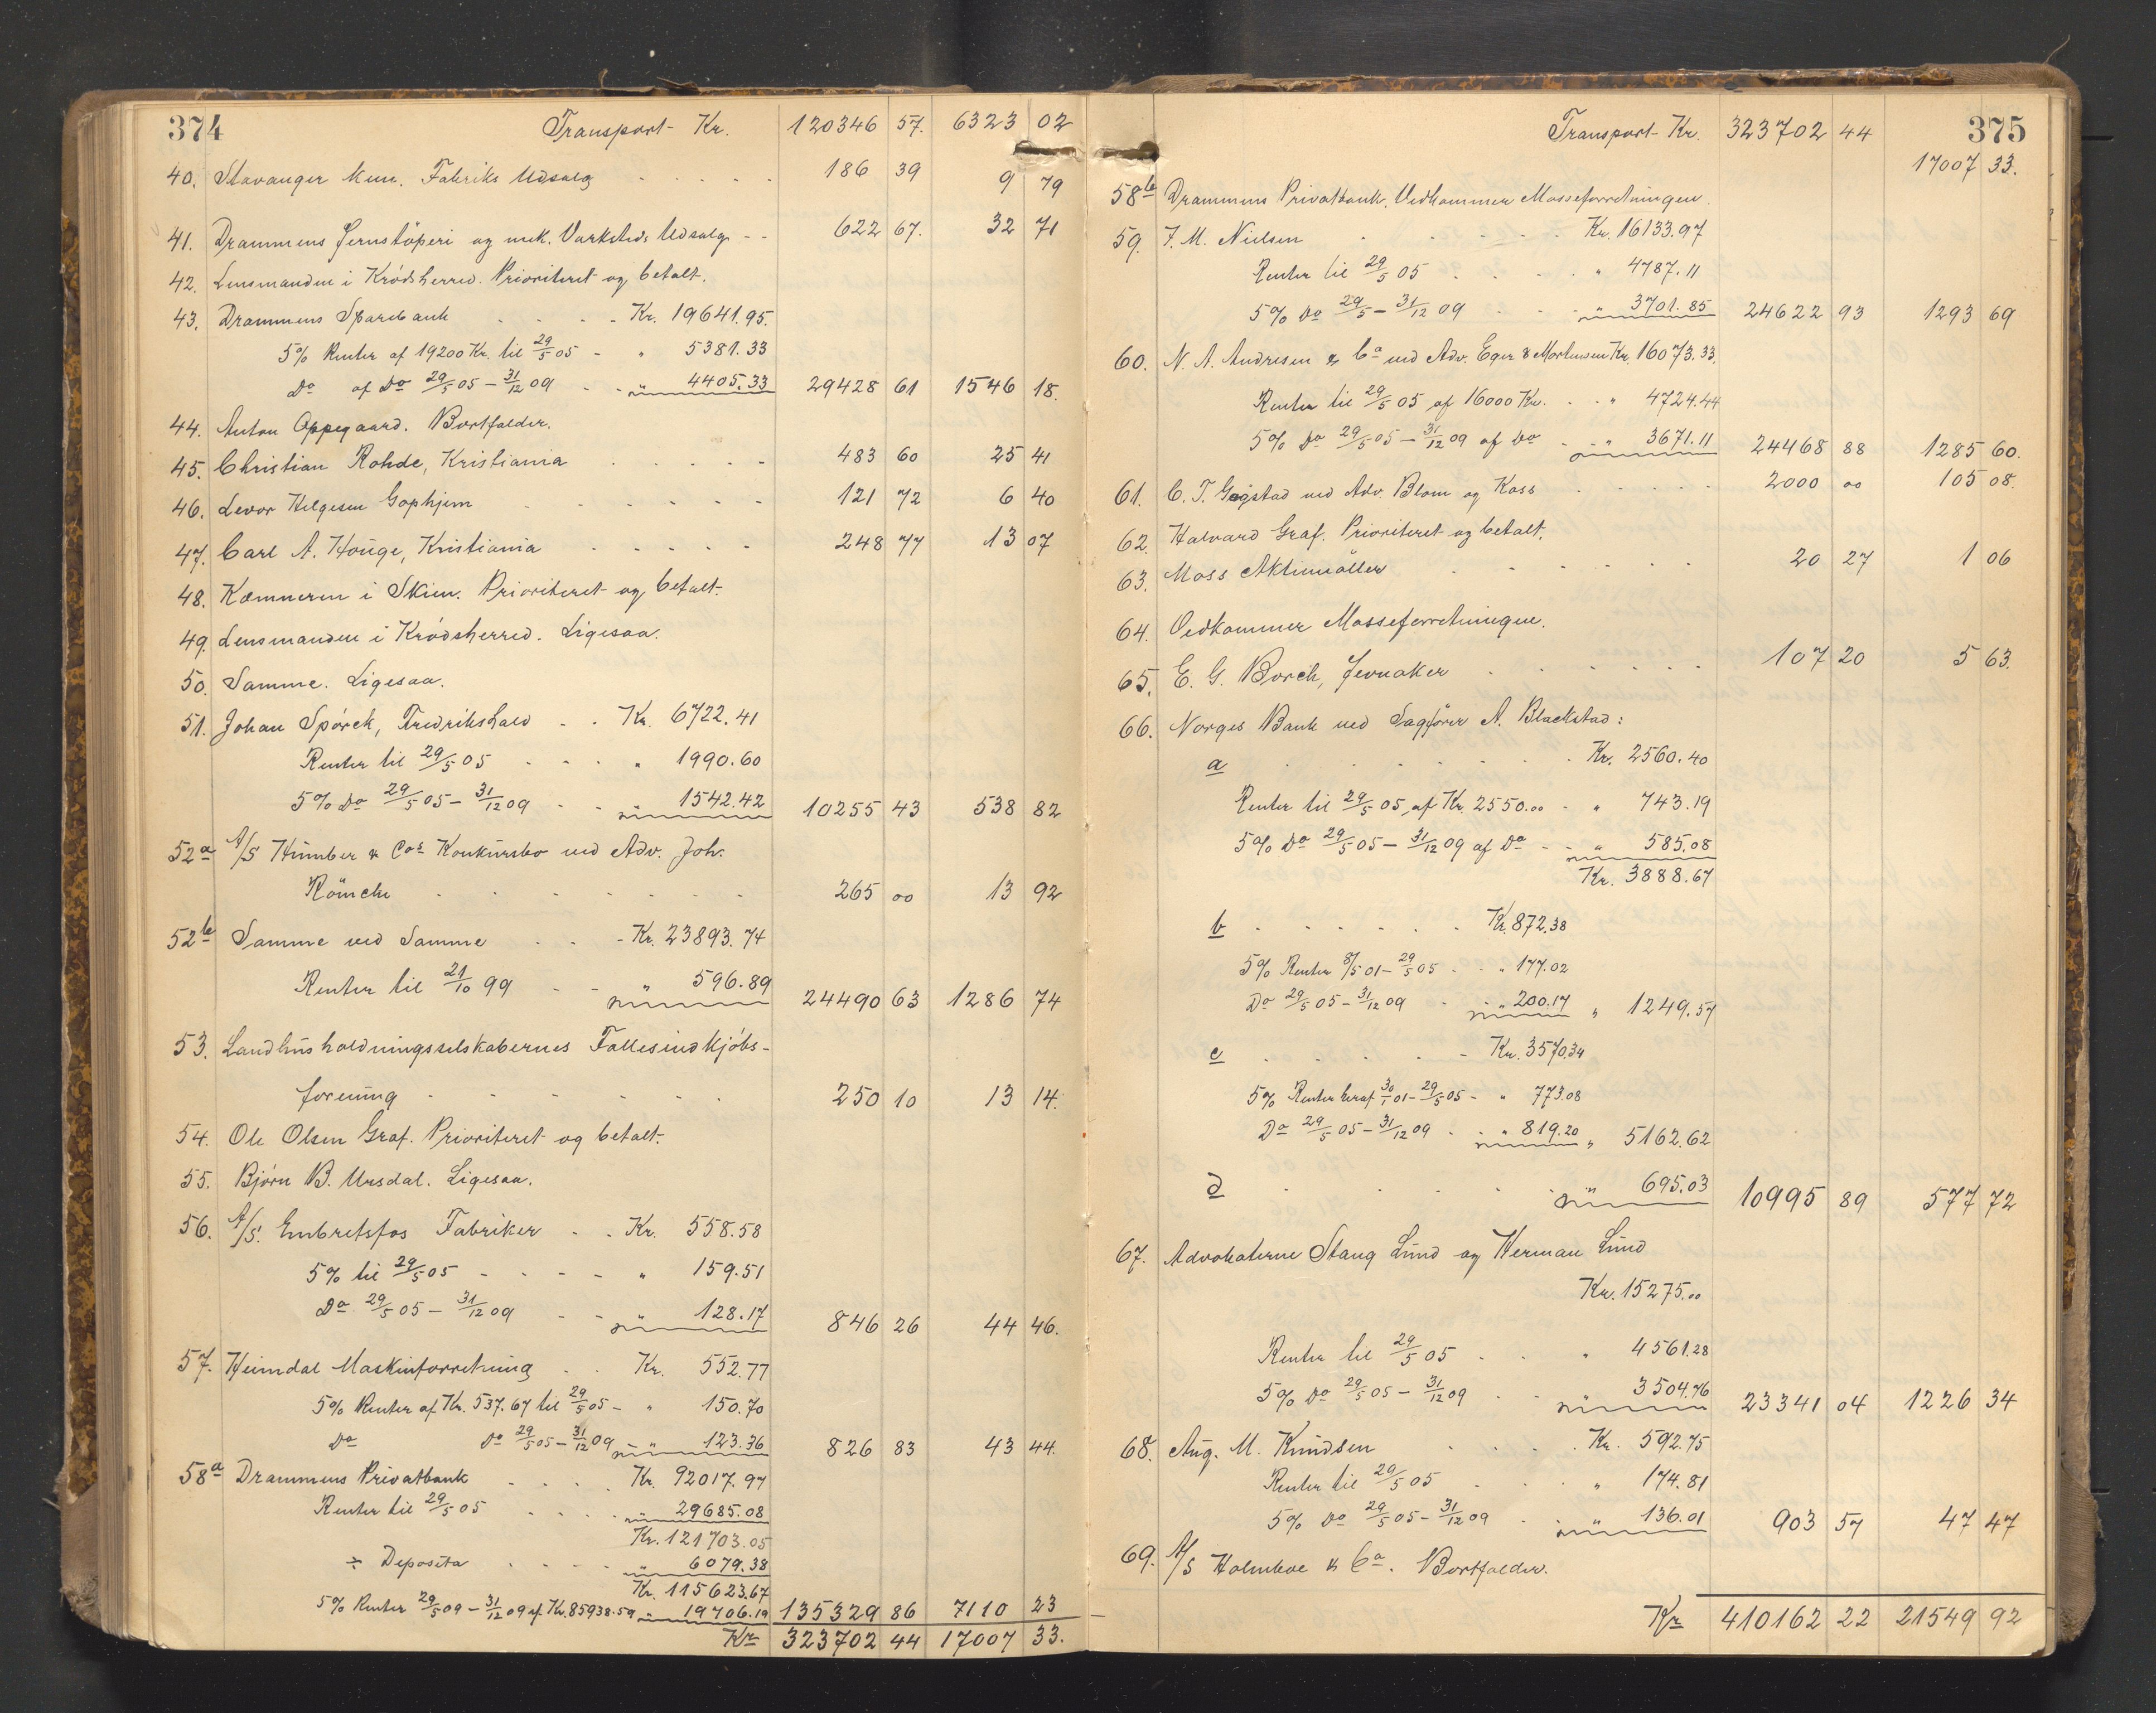 374 Transport Kr. 120346 57. 6323 02
40. Stavanger kun. Fabriks Udsalg 186 39 9 79
41. Drammens Jernstöperi og mek. Værksteds Udsalg 622 67. 32 71
42. Lensmanden i Krödsherred. Prioriteret og betalt.
43. Drammens Sparebank Kr. 19641.95.
5% Renter af 19200 Kr. til 29/5 05 - " 5381.33
Do af Do 29/5 05 - 31/12 09 " 4405.33 29428 61 1546 18.
44. Anton Oppegaard. Bortfalder.
45. Christian Rohde, Kristiania 483 60 25 41
46. Levor Helgesen Gophjem 121 72 6 40
47. Carl A. Houge, Kristiania 248 77 13 07
48. Kæmneren i Skien. Prioriteret og betalt.
49. Lensmanden i Krödsherred. Ligesaa.
50. Samme. Ligesaa.
51. Johan Spörck, Fredrikshald Kr. 6722.41
Renter til 29/5 05 " 1990.60
5% Do 29/5 05 - 31/12 09 " 1542.42 10255 43 538 82
52a A/S Humber & Cos Konkursbo ved Adv. Joh.
Römcke 265 00 13 92
52b Samme ved Samme Kr. 23893.74
Renter til 21/10 99 " 596.89 24490 63 1286 74
53. Landhusholdningsselskabernes Fællesindkjöbs-
forening 250 10 13 14.
54. Ole Olsen Graf. Prioriteret og betalt.
55. Björn B. Ursdal. Ligesaa.
56. A/S. Embretsfos Fabriker Kr. 558.58
5% til 29/5 05 " 159.51
Do 29/5 05 - 31/12 09 " 128.17 846 26 44 46.
57. Heimdal Maskinforretning Kr. 552.77
5% Renter af Kr. 537.67 til 29/5 05 - " 150.70
Do Do 29/5 05 - 31/12 09 " 123.36 826 83 43 44.
58a Drammens Privatbank Kr. 92017.97
Renter til 29/5 05 " 29685.08
Kr. 121703.05
÷ Deposita " 6079.38
Kr. 115623.67
5% Renter 29/5 09 - 31/12 09 af Kr. 85938.59 " 19706.19 135329 86 7110 23
Kr 323702 44 17007 33.
Transport Kr. 323702 44 375
17007 33.
58b Drammens Privatbank. Vedkommer Masseforretningen.
59. F. M. Nielsen Kr. 16133.97
Renter til 29/5 05 " 4787.11
5% Do 29/5 - 31/12 09 " 3701.85 24622 93 1293 69
60. N. A. Andresen & Co ved Adv. Eger & Mortensen Kr. 16073.33.
Renter til 29/5 05 af 16000 Kr. " 4724.44
5% Do 29/5 05 - 31/12 09 af Do " 3671.11 24468 88 1285 60.
61. C. T. Gogstad ved Adv. Blom og Kass 2000 00 105 08.
62. Halvard Graf. Prioriteret og betalt.
63. Moss Aktiemöller 20 27 1 06
64. Vedkommer Masseforretningen.
65. E. G. Borch, Jevnaker 107 20 5 63.
66. Norges Bank ved Sagförer A. Blackstad:
a Kr. 2560.40
Renter til 29/5 05 af Kr. 2550.00 - " 743.19
5% Do 29/5 05 - 31/12 09 af Do - " 585.08
Kr. 3888.67
b Kr. 872.38
5% Renter 8/5 01 - 29/5 05 " 177.02
Do 29/5 05 - 31/12 09 " 200.17 " 1249.57
c Kr. 3570.34
5% Renter heraf 30/1 01 - 29/5 05 - " 773.08
Do 29/5 05 - 31/12 09 " 819.20 " 5162.62
d " 695.03 10995 89 577 72
67. Advokaterne Stang Lund og Herman Lund
Kr. 15275.00
Renter til 29/5 05 " 4561.28
5% Do 29/5 05 - 31/12 09 " 3504.76 23341 04 1226 34
68. Aug. M. Knudsen Kr. 592.75
Renter til 29/5 05 " 174.81
5% Do 29/5 05 - 31/12 09 " 136.01 903 57 47 47
69. A/S Holmboe & Co. Bortfalder.
Kr 410162 22 21549 92